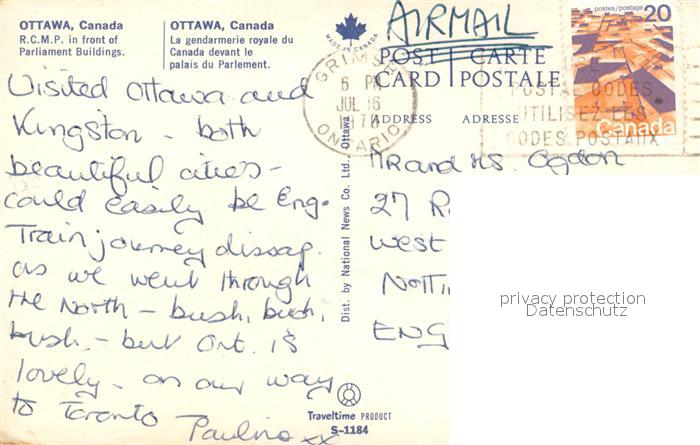 OTTAWA, Canada
R.C.M.P. in front of
Parliament Buildings.
OTTAWA, Canada
La gendarmerie royale du
Canada devant le
palais du Parlement.
Visited Ottawa and
Kingston - both
beautiful cities -
could easily be Eng.
Train journey dissap.
as we went through
the North - bush, bush,
bush - but Ont. is
lovely - on our way
to Toronto
Pauline xx
MADE IN CANADA
Dist. by National News Co. Ltd., Ottawa
Traveltime PRODUCT
S-1184
AIRMAIL
POST CARTE
CARD POSTALE
ADDRESS ADRESSE
6 PM
JUL 16
ONTARIO
postes/postage 20
Canada
POSTAL CODES
UTILISEZ LES
CODES POSTAUX
MR and MS. Ogdon
27 R
West
NOTTI
ENG
privacy protection
Datenschutz